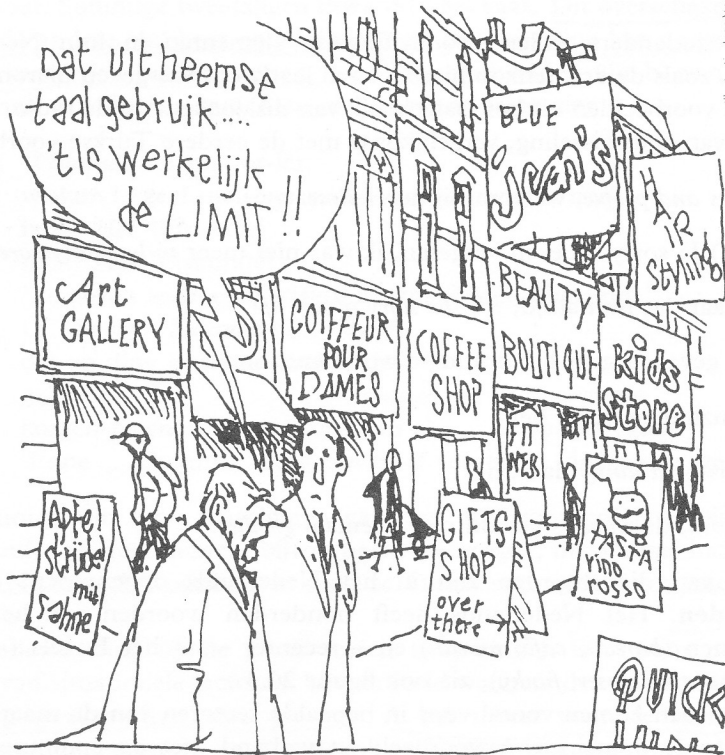 Dat uitheemse
taalgebruik.
'tis werkelijk
de LIMIT!!
BLUE
jean's
HAIR
Styling
Art
GALLERY
COIFFEUR
POUR
DAMES
COFFEE
SHOP
BEAUTY
BOUTIQUE
Kids
Store
FIT
Apfe
strudel
mit
Sahne
GIFTS-
SHOP
over
there
PASTA
vino
rosso
QUICK